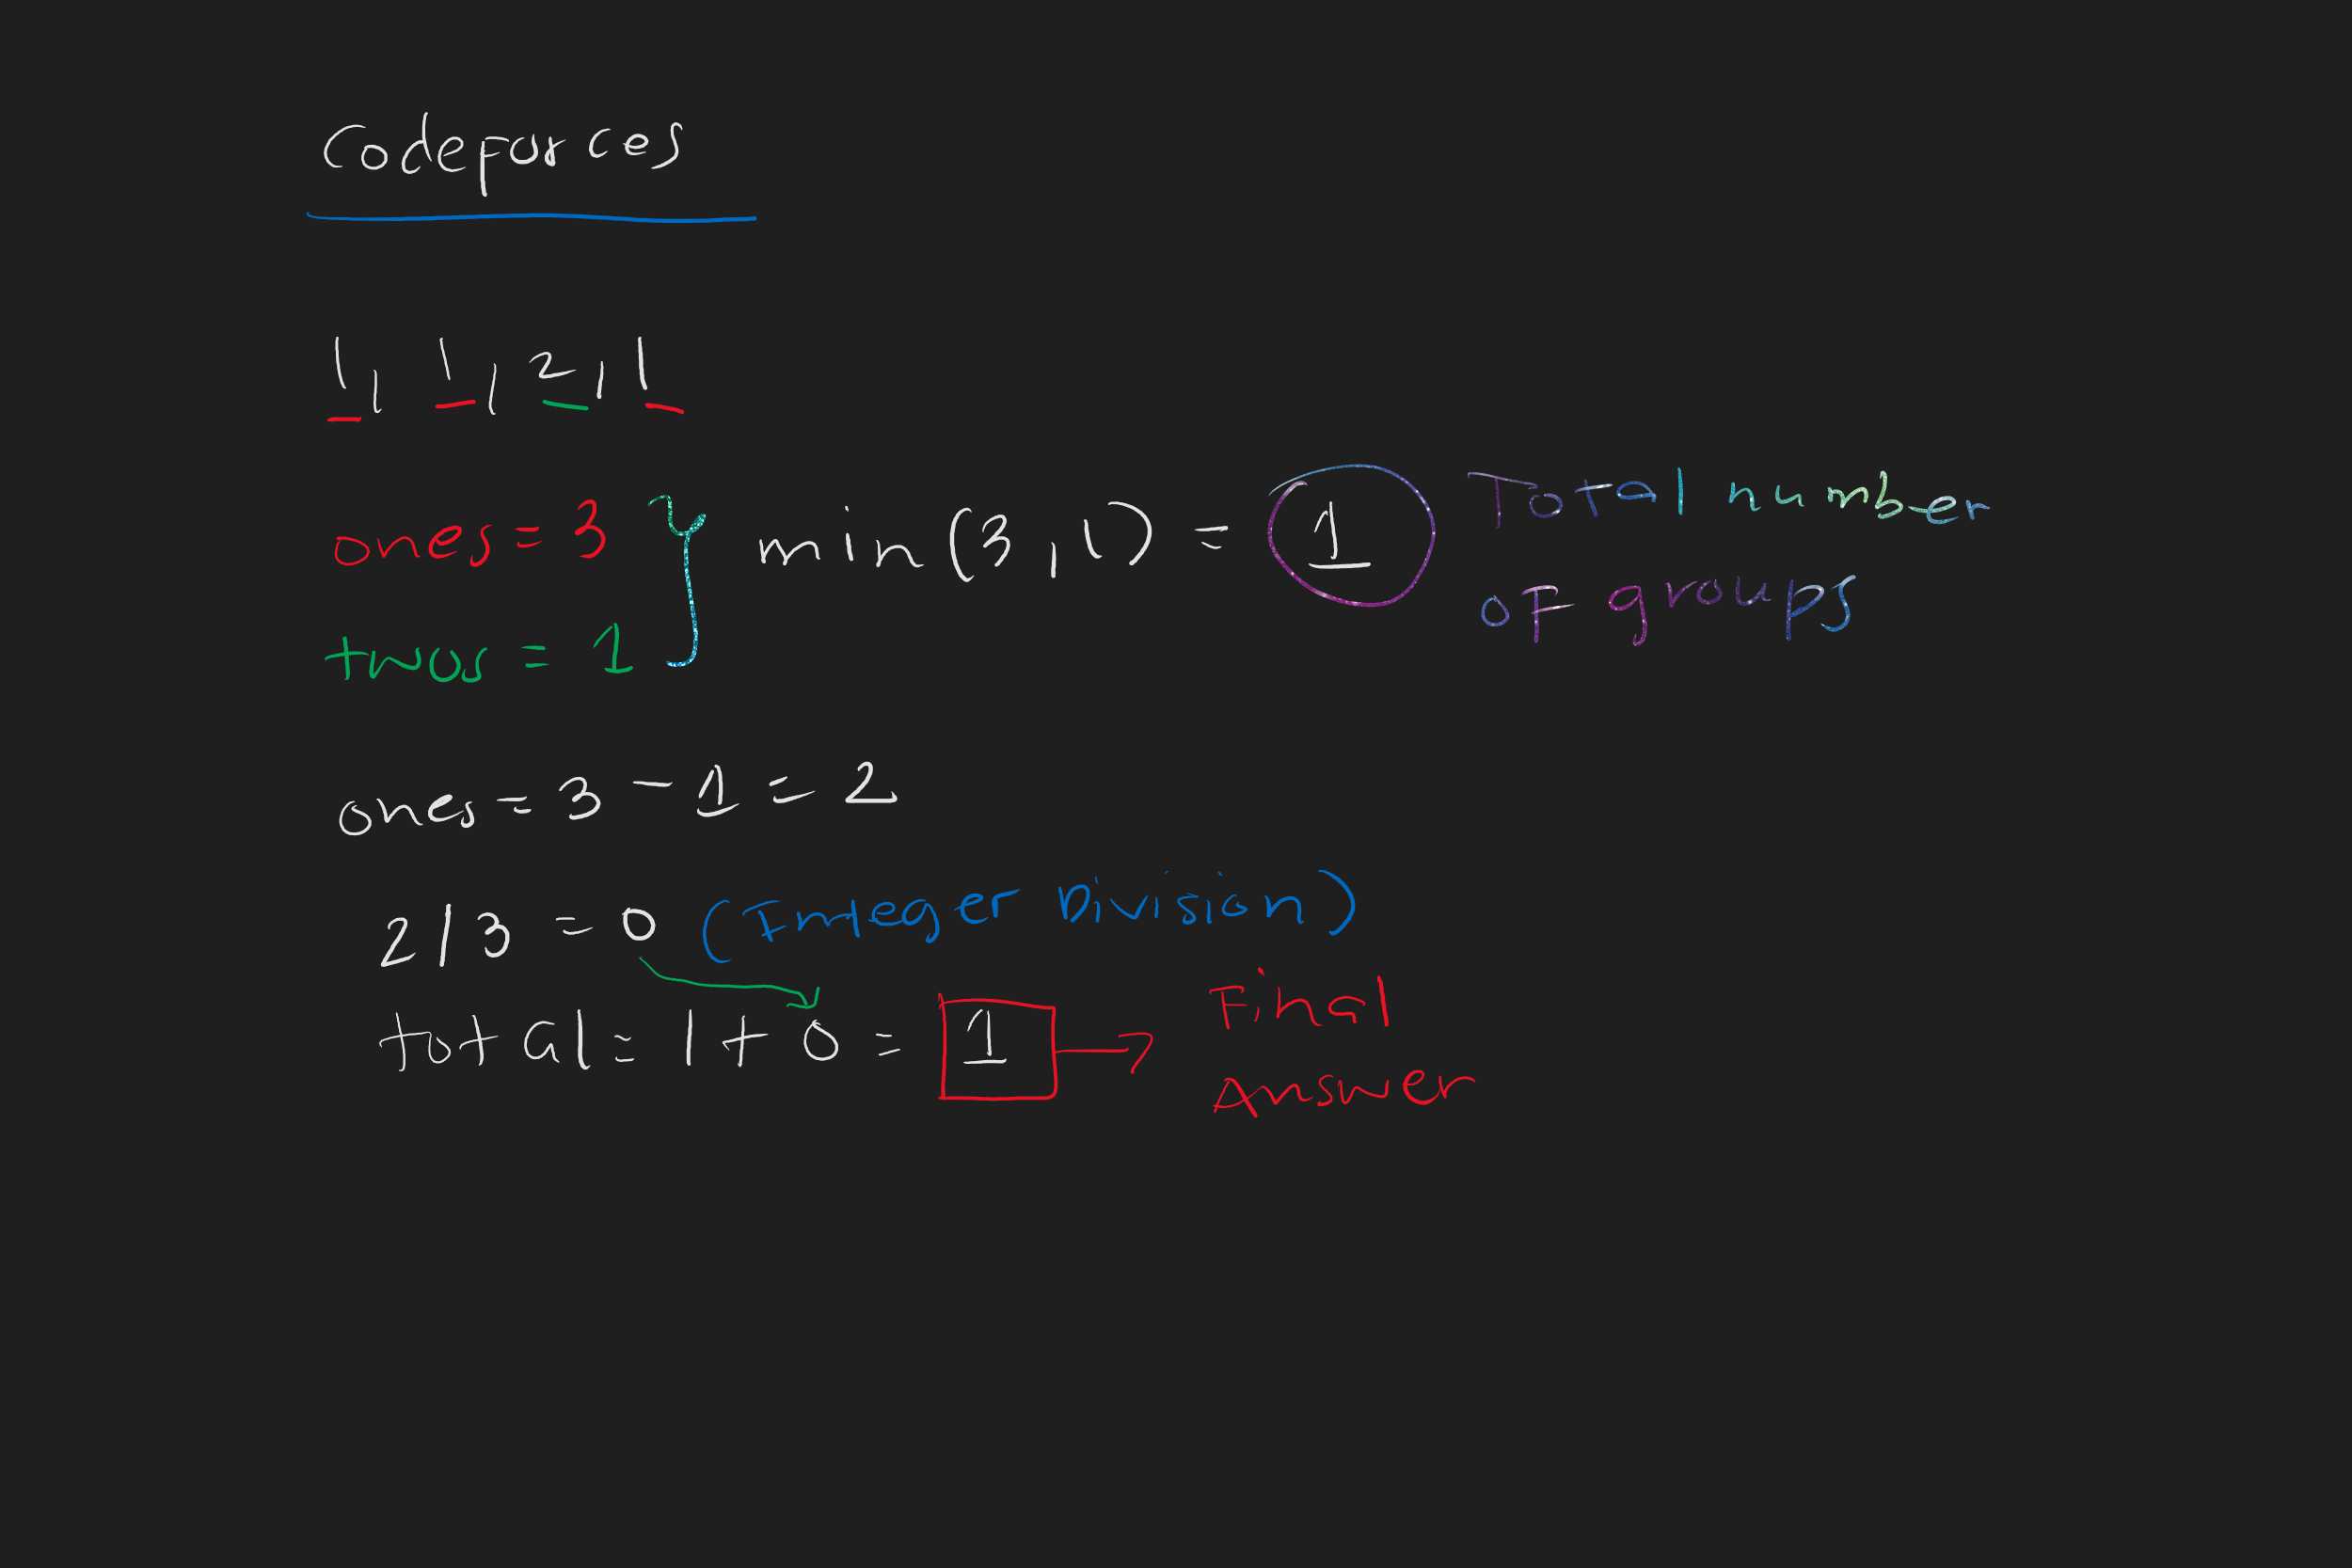 Codeforces
1, 1, 2, 1
ones = 3
twos = 1
min(3,1) = 1
Total number
of groups
ones = 3 - 1 = 2
2/3 = 0 (Integer Division)
total = 1 + 0 = 1
Final
Answer